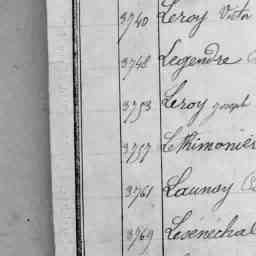 3740 Leroy Victo
3748 Legendre
3753 Leroy Joseph
3757 Lethimonier
3761 Launay
3769 Lesénéchal